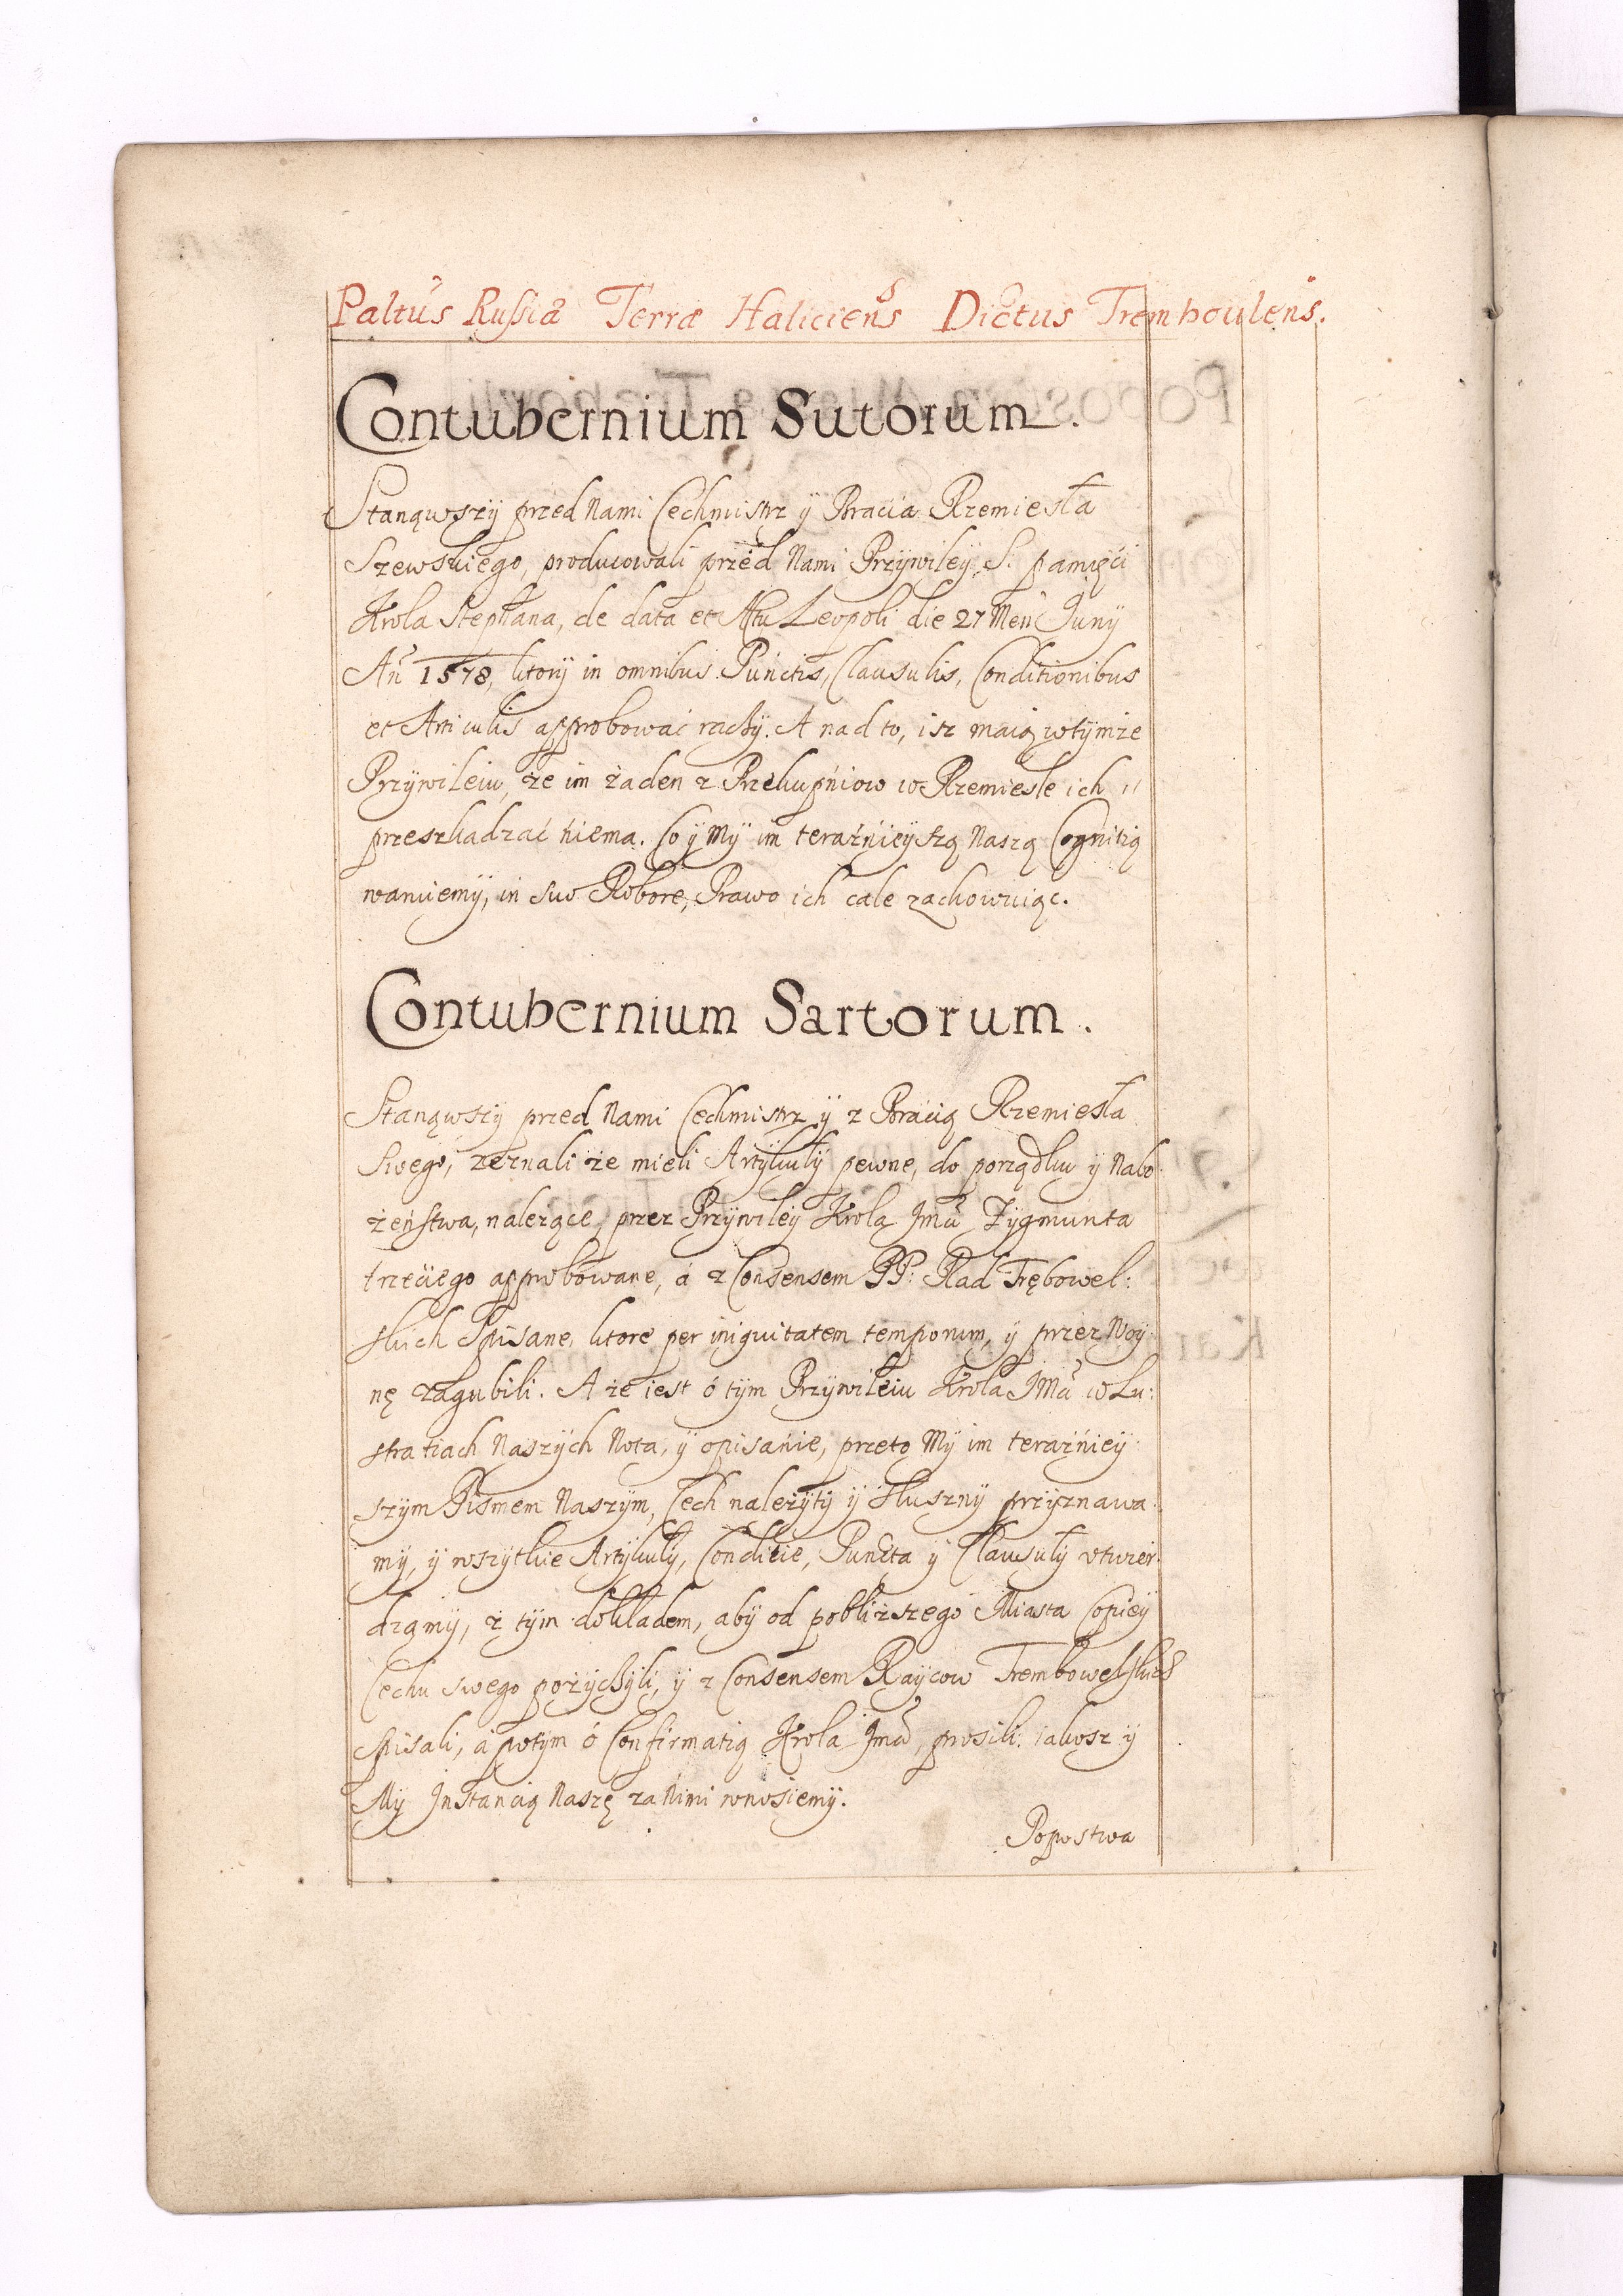 Paltus Russiæ Terræ Haliciens Dictus Tremboulens.
Contubernium Sutorum.
Stanąwszÿ przed Nami Cechmistrz ÿ Bracia Rzemiesła
Szewskiego, producowali przed Nami Przÿwileÿ S. pamięci
Krola Stephana, de data et Actu Leopoli die 27 Men Junÿ
An 1578, ktorÿ in omnibus Punctis, Clausulis, Conditionibus
et Articulis approbować raczÿ. A nad to, isz maią w tÿmże
Przÿwileiu, że im żaden z Przekupniow w Rzemieśle ich
przeszkadzać niema. Co ÿ Mÿ im teraźnieÿszą Naszą Cognitią
waruiemÿ, in suo Robore, Prawo ich cale zachowuiąc.
Contubernium Sartorum.
Stanąwszÿ przed Nami Cechmistrz ÿ z Bracią Rzemiesła
Swego, zeznali że mieli Artÿkułÿ pewne, do porządku ÿ Nabo
żeństwa, nalezące, przez Przÿwileÿ Krola Jmci Zÿgmunta
trzeciego approbowane, á z Consensem PP: Rad Trębowel:
skich Spisane, ktore per iniquitatem temporum, ÿ przez Woÿ
nę zagubili. A że iest ó tÿm Przÿwileiu Krola JMci w Lu:
stratiach Naszÿch Nota, ÿ opisanie, przeto Mÿ im teraźnieÿ
szÿm Pismem Naszÿm, Cech należÿtÿ ÿ słusznÿ przÿznawa
mÿ, ÿ wszÿtkie Artÿkułÿ, Conditie, Puncta ÿ Clausułÿ vtwier
dzamÿ, z tÿm dokładem, abÿ od pobliższego Miasta Copieÿ
Cechu swego pożÿczÿli, ÿ z Consensem Raÿcow Trembowelskich
Spisali, á potÿm ó Confirmatią Krola Jmci prosili. iakosz ÿ
Mÿ Instancią Naszę za Nimi wnosiemÿ.
Popostwa